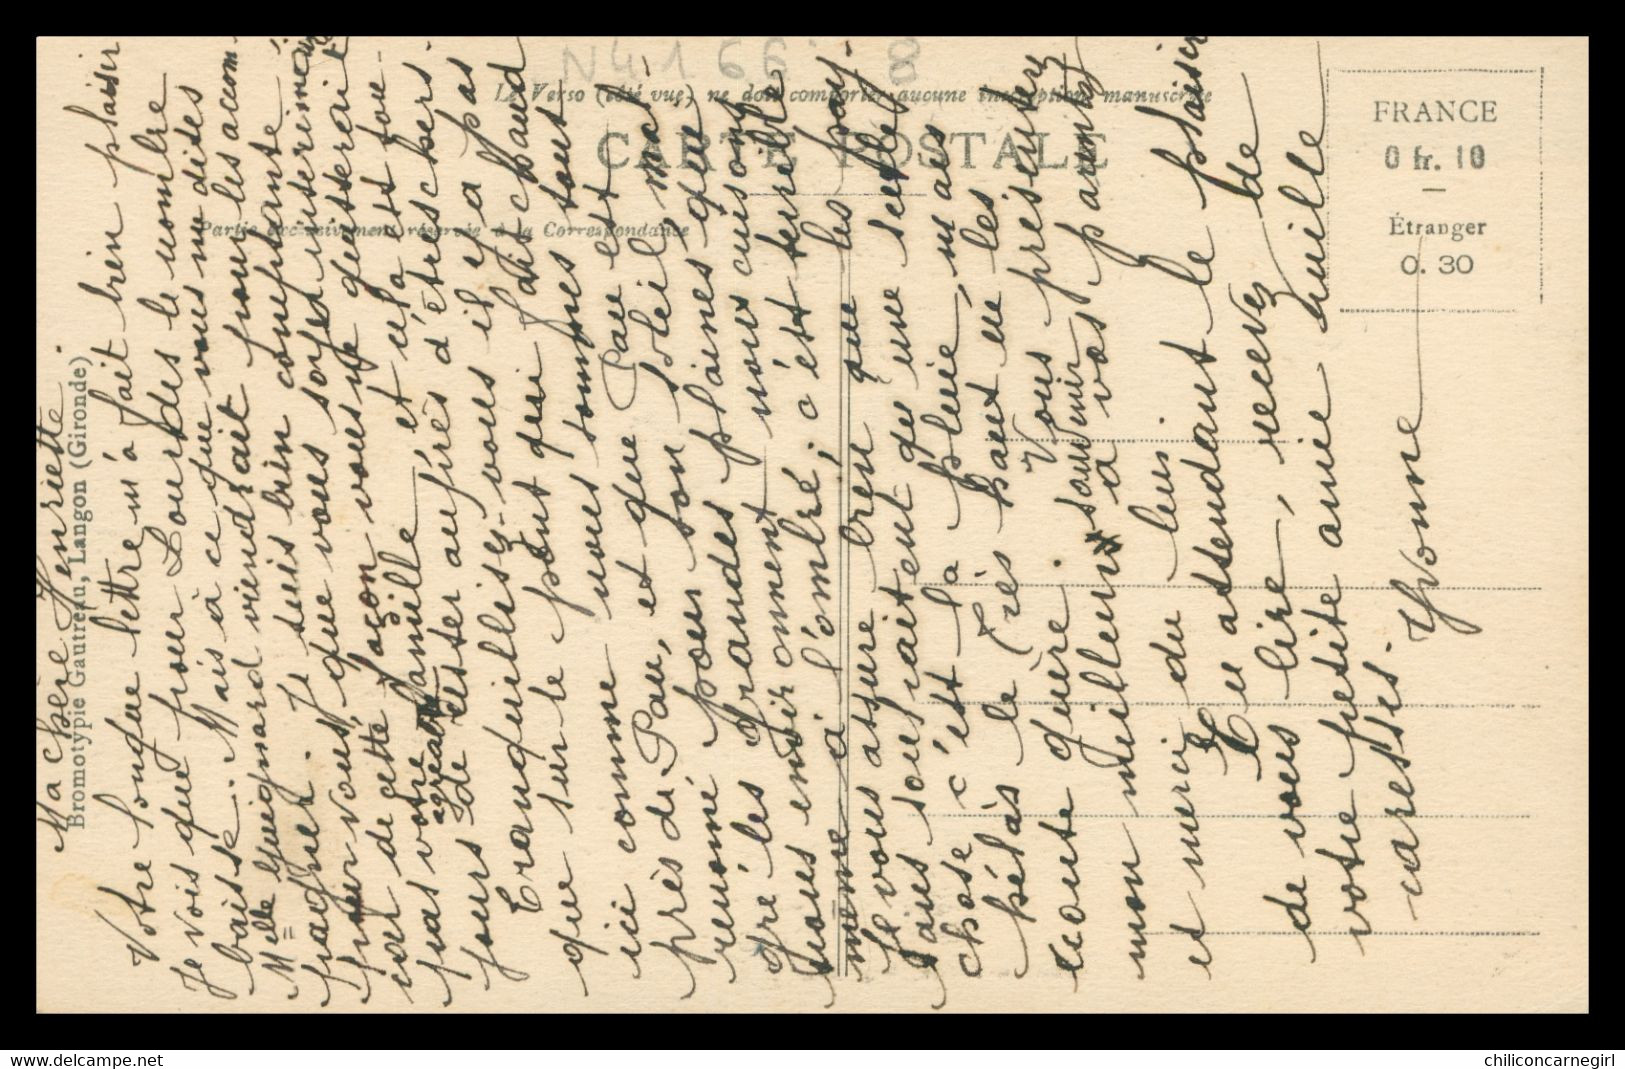 N4166 8
Le Verso (côté vue) ne doit comporter aucune inscription manuscrite
CARTE POSTALE
Partie exclusivement réservée à la Correspondance
FRANCE
0 fr. 10
Étranger
0. 30
Bromotypie Gautreau, Langon (Gironde)
Ma chère Henriette.
Votre longue lettre m'a fait bien plaisir
Je vois que pour Lourdes le nombre
baisse. Mais à ce que vous me dites
Melle Guignard viendrait pour les accom-
pagner. Je suis bien contente
pour vous que vous soyez
cer de cette façon vous ne quitterait
pas votre famille et cela est tou-
jours agréable de rester auprès d'êtres chers.
Tranquillisez-vous il n'y a pas
que sur le pont qu'il fait chaud
ici comme nous sommes tout
près de Pau, et que Pau est
renommé pour son soleil, mal-
gré les grandes plaines que
nous environnent nous cuisons
même à l'ombre; c'est terrible
Je vous assure bien que les pay-
sans souhaitent qu'une seule
chose c'est la pluie, mais
hélas le Très haut ne les
écoute guère. Vous présenterez
mon meilleur souvenir à vos parents
et merci du leur.
En attendant le plaisir
de vous lire, recevez de
votre petite amie mille
caresses.
Yvonne
chiliconcarnegirl